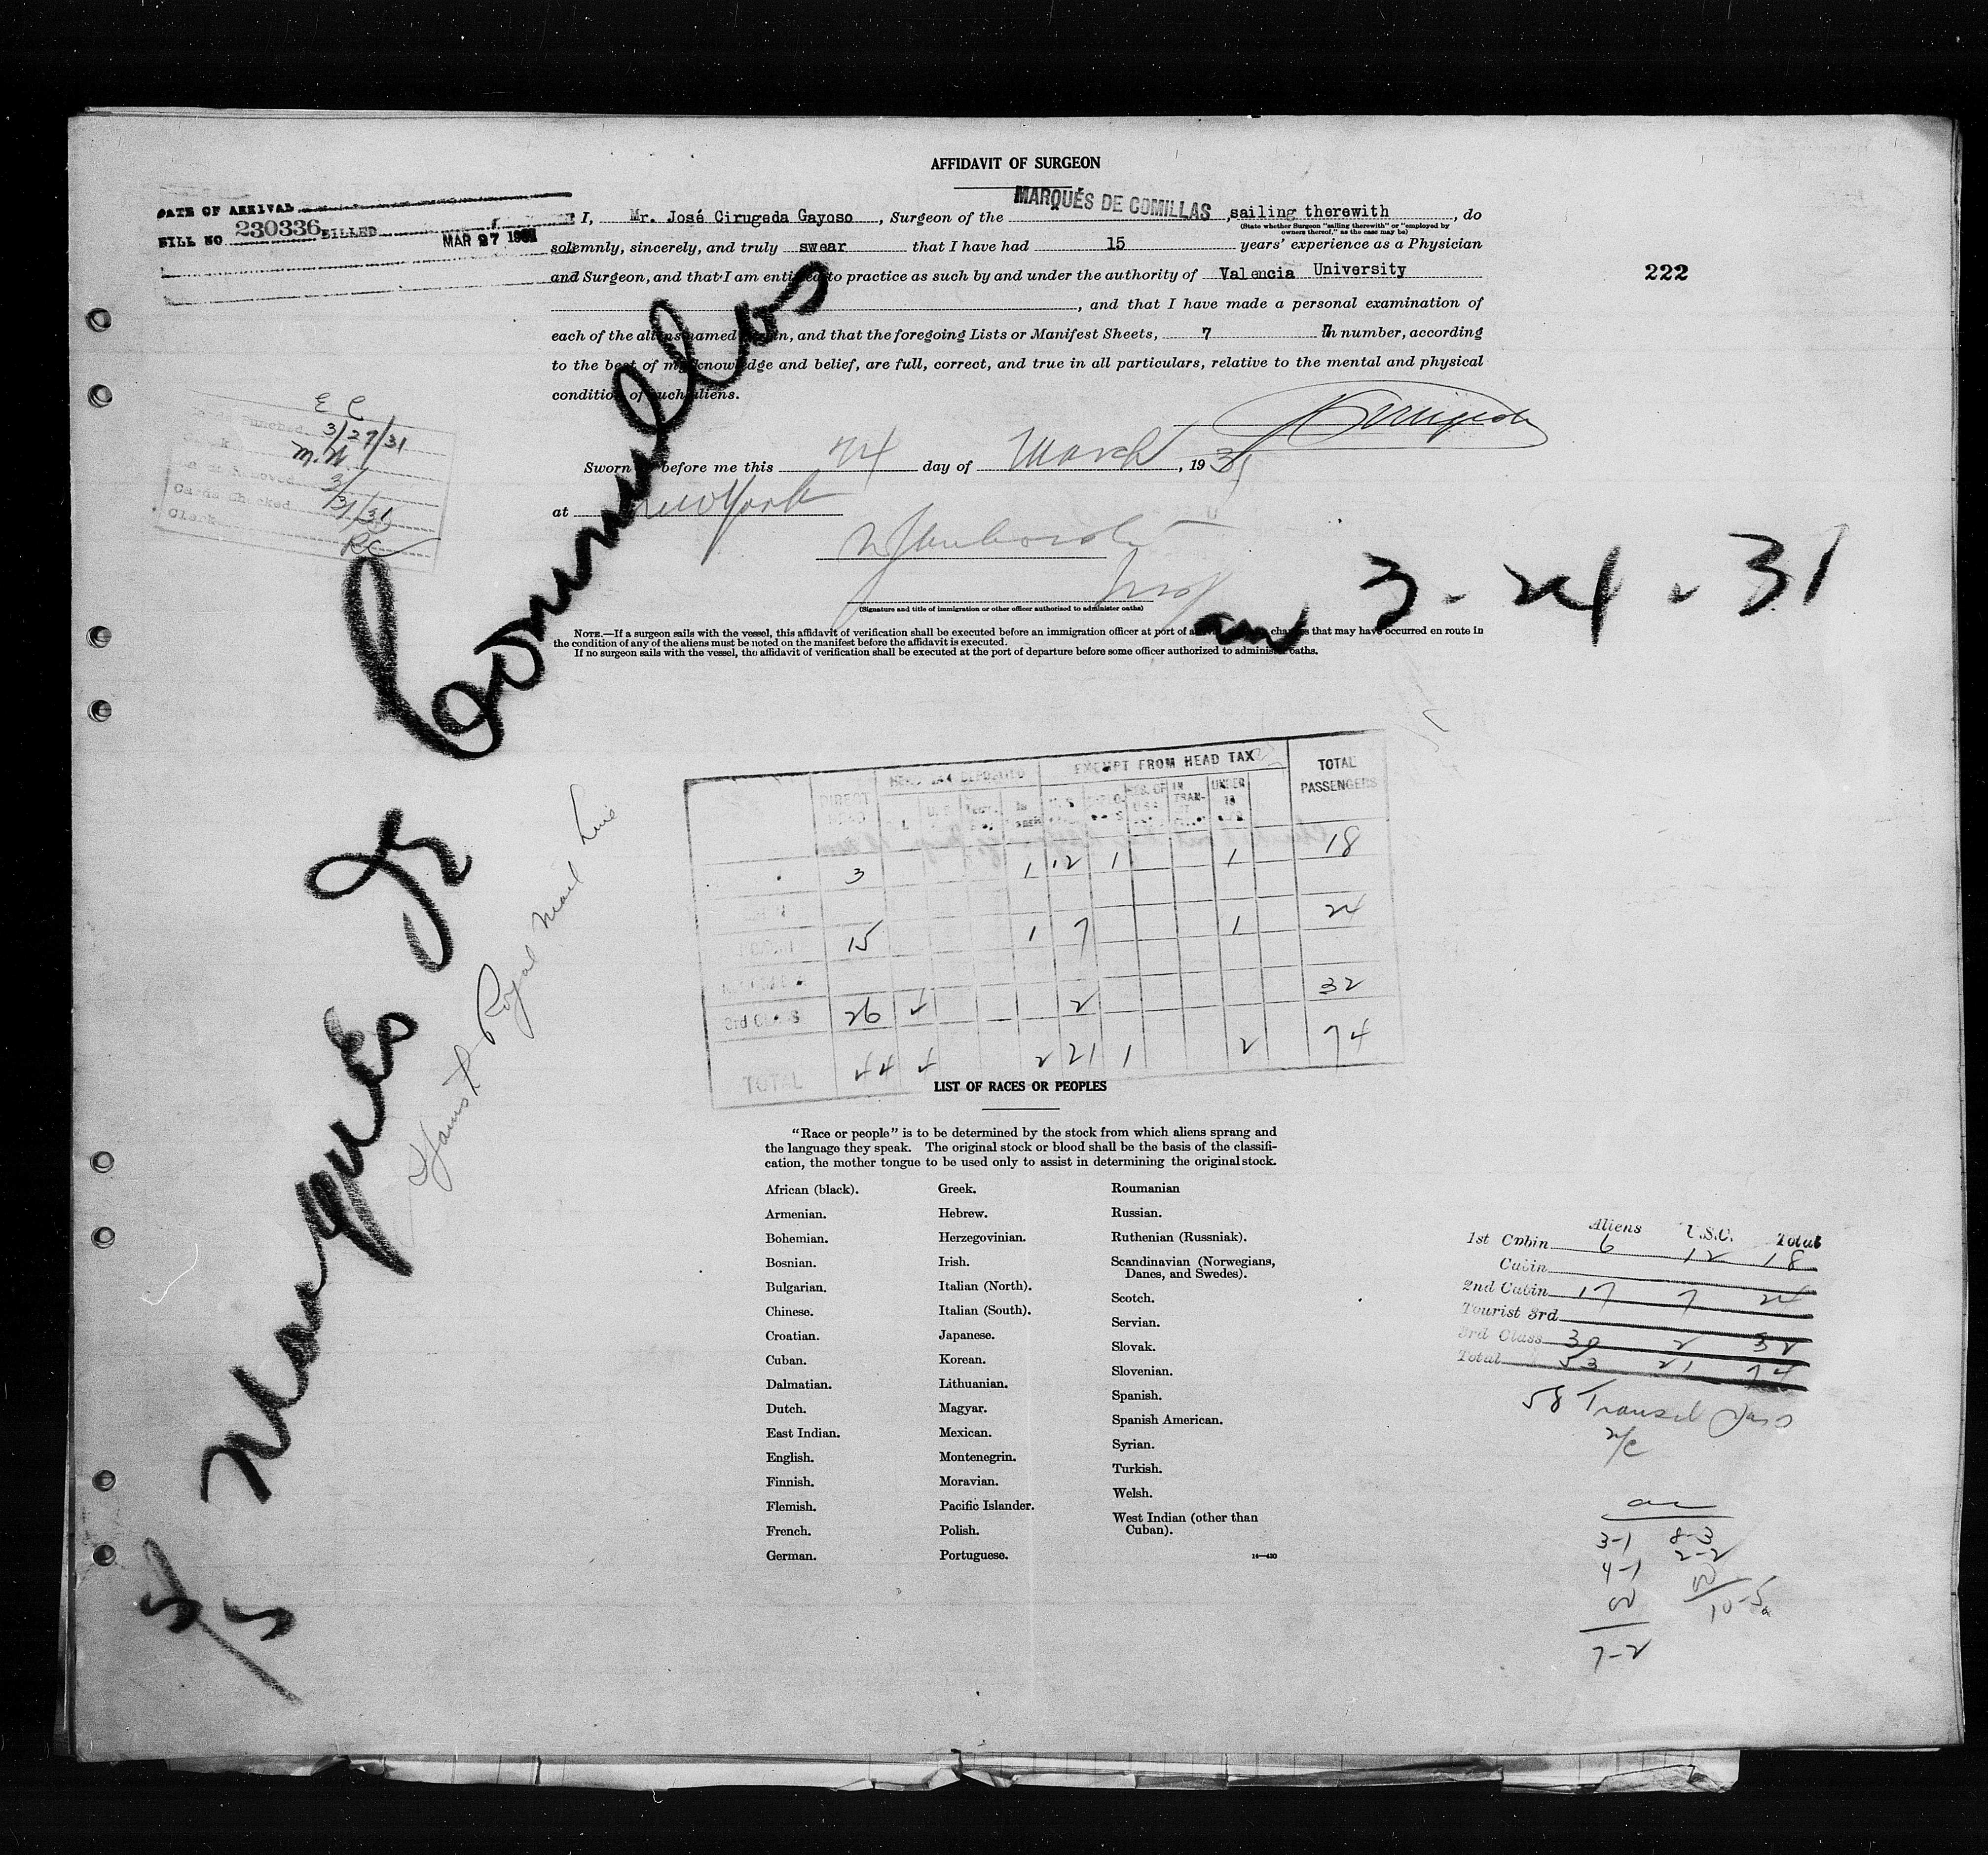 AFFIDAVIT OF SURGEON
DATE OF ARRIVAL
BILL NO 230336 BILLED MAR 27 1931
I, Mr. José Cirugeda Gayoso, Surgeon of the MARQUÉS DE COMILLAS, sailing therewith, do
(State whether Surgeon "sailing therewith" or "employed by
owners thereof," as the case may be)
solemnly, sincerely, and truly swear that I have had 15 years' experience as a Physician
and Surgeon, and that I am entitled to practice as such by and under the authority of Valencia University
222
, and that I have made a personal examination of
each of the aliens named herein, and that the foregoing Lists or Manifest Sheets, 7 in number, according
to the best of my knowledge and belief, are full, correct, and true in all particulars, relative to the mental and physical
condition of such aliens.
E C
Punched 3/27/31
Clerk M.W.
Removed 3/31/31
Cards Checked
Clerk RC
Sworn before me this 24 day of March, 1931
at New York
(Signature and title of immigration or other officer authorized to administer oaths)
3-24-31
NOTE.—If a surgeon sails with the vessel, this affidavit of verification shall be executed before an immigration officer at port of changes that may have occurred en route in
the condition of any of the aliens must be noted on the manifest before the affidavit is executed.
If no surgeon sails with the vessel, the affidavit of verification shall be executed at the port of departure before some officer authorized to administer oaths.
Marques de Comillas
Spanish Royal Mail Line
5/5
HEAD TAX DEPOSITED EXEMPT FROM HEAD TAX TOTAL PASSENGERS
DIRECT HEAD
3 1 12 1 1 18
15 1 7 1 24
3rd CLASS 26 4 2 32
TOTAL 44 4 2 21 1 2 74
LIST OF RACES OR PEOPLES
"Race or people" is to be determined by the stock from which aliens sprang and
the language they speak. The original stock or blood shall be the basis of the classifi-
cation, the mother tongue to be used only to assist in determining the original stock.
African (black).
Armenian.
Bohemian.
Bosnian.
Bulgarian.
Chinese.
Croatian.
Cuban.
Dalmatian.
Dutch.
East Indian.
English.
Finnish.
Flemish.
French.
German.
Greek.
Hebrew.
Herzegovinian.
Irish.
Italian (North).
Italian (South).
Japanese.
Korean.
Lithuanian.
Magyar.
Mexican.
Montenegrin.
Moravian.
Pacific Islander.
Polish.
Portuguese.
Roumanian
Russian.
Ruthenian (Russniak).
Scandinavian (Norwegians,
Danes, and Swedes).
Scotch.
Servian.
Slovak.
Slovenian.
Spanish.
Spanish American.
Syrian.
Turkish.
Welsh.
West Indian (other than
Cuban).
14—430
Aliens U.S.C. Total
1st Cabin 6 12 18
Cabin
2nd Cabin 17 7 24
Tourist 3rd
3rd Class 30 2 32
Total 53 21 74
58 Transit Pass
3-1 8-3
4-1 2-2
10-5
7-2